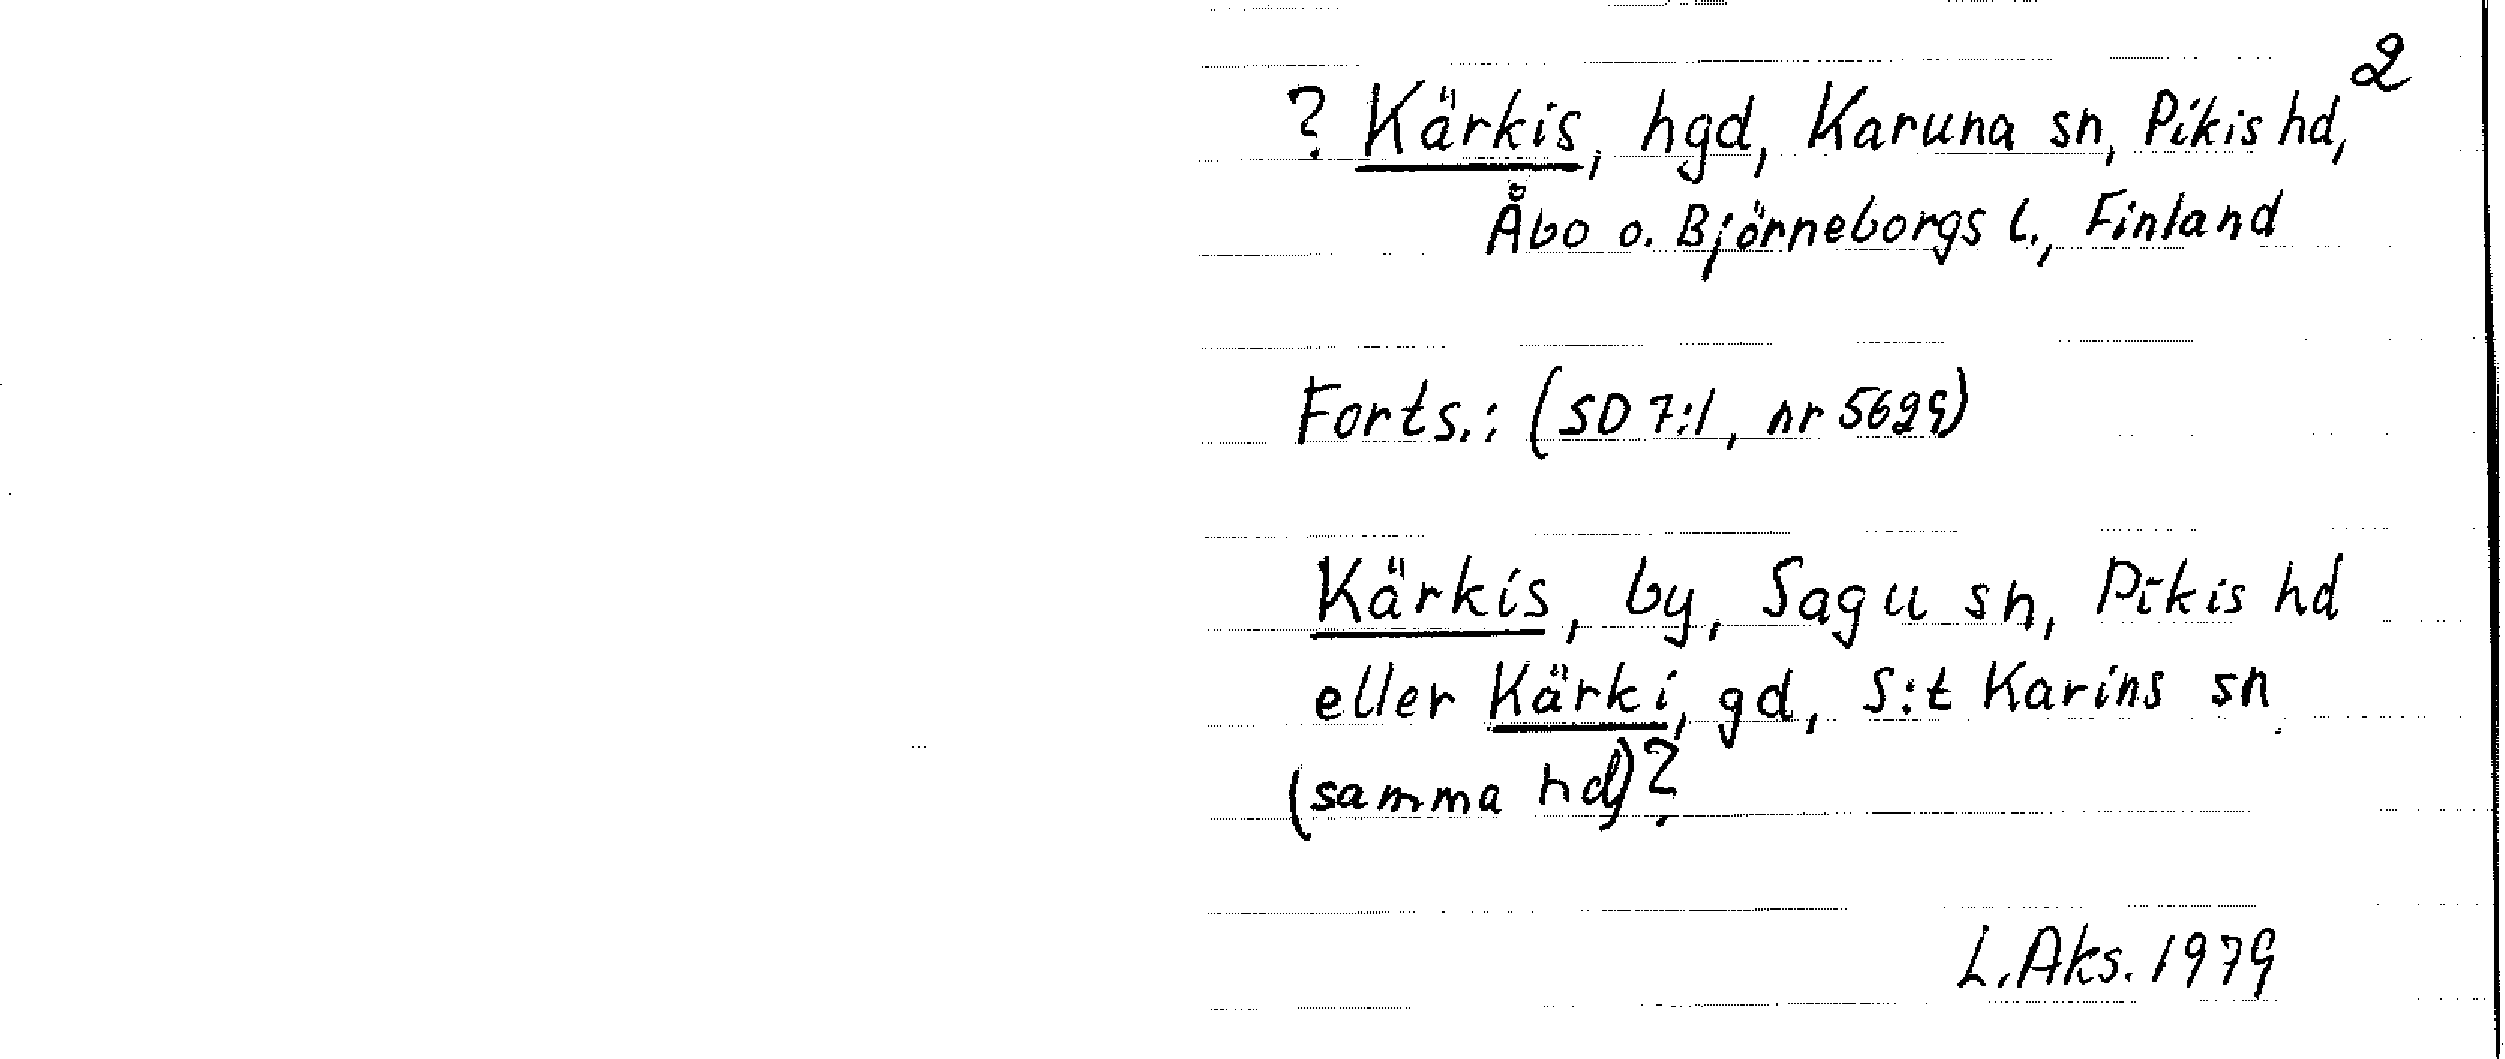 2
? Kärkis, hgd, Karuna sn, Pikis hd,
Åbo o. Björneborgs l., Finland
Forts.: (SD 7:1, nr 5629)
Kärkis, by, Sagu sn, Pikis hd
eller Kärki, gd, S:t Karins sn
(samma hd)?
L. Aks. 1979